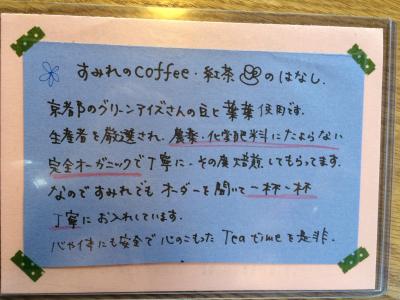 すみれのcoffee・紅茶のはなし.
京都のグリーンアイズさんの豆と葉使用です.
生産者を厳選され、農薬・化学肥料にたよらない
完全オーガニックで丁寧に、その度焙煎してもらってます.
なのですみれでもオーダーを聞いて一杯一杯
丁寧にお入れしています.
心や体にも安全で心のこもったTea timeを是非.